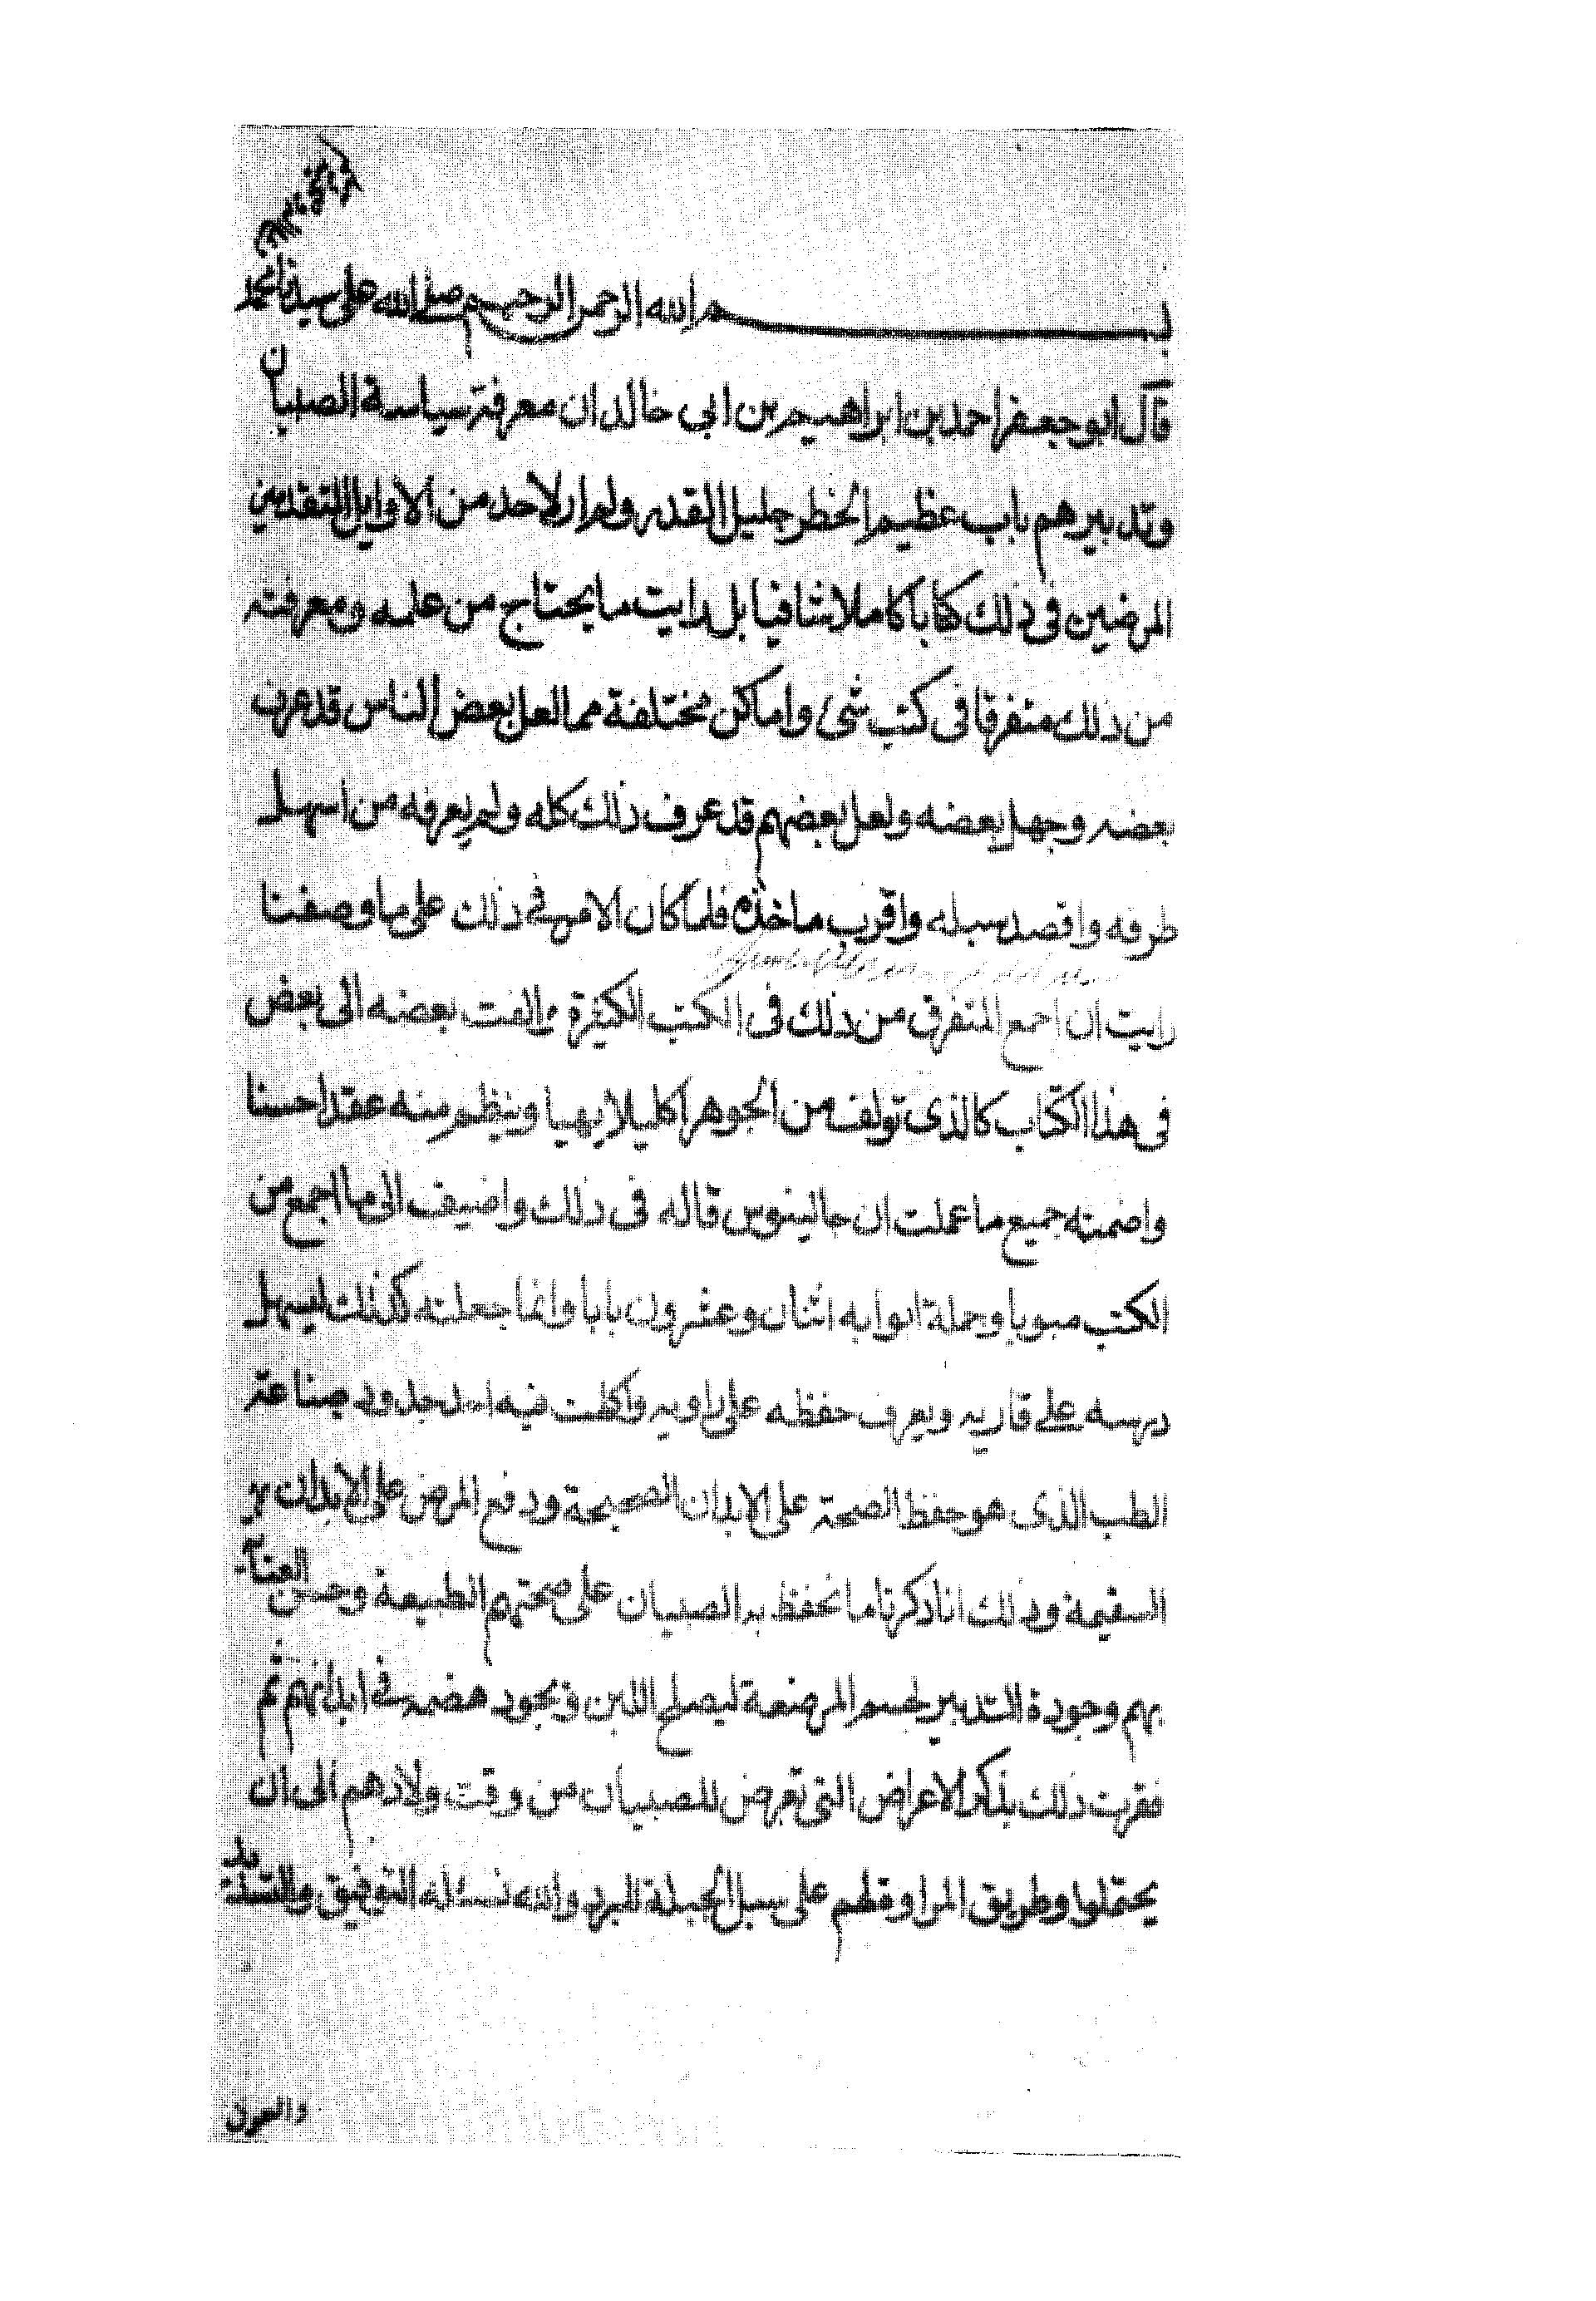 بسم الله الرحمن الرحيم صلى الله على سيدنا محمد
قال ابو جعفر احمد بن ابراهيم بن ابي خالد ان معرفة سياسة الصبيان
وتدبيرهم باب عظيم الخطر جليل القدر ولم ار لاحد من الاوايل المتقدمين
المرضيين في ذلك كتابا كاملا شافيا بل رايت ما يحتاج من علمه ومعرفته
من ذلك متفرقا في كتب شتى واماكن مختلفة مما لعل بعض الناس قد عرف
بعضه وجهل بعضه ولعل بعضهم قد عرف ذلك كله ولم يعرفه من اسهل
طرقه واقصد سبله واقرب ماخذه فلما كان الامر في ذلك على ما وصفنا
رايت ان اجمع المتفرق من ذلك في الكتب الكثيرة والفت بعضه الى بعض
في هذا الكتاب كالذي تولف من الجوهر اكليلا بهيا وينظم منه عقدا حسنا
واضمنه جميع ما عملت ان جالينوس قاله في ذلك واضيف الى ما اجمع من
الكتب مبوبا وجملة ابوابه اثنان وعشرون بابا وانما جعلته كذلك ليسهل
درسه على قاريه ويعرف حفظه على راويه واكلت فيه حدود صناعة
الطب الذى هو حفظ الصحة على الابدان الصحيحة ودفع المرض على الابدان
السقيمة وذلك انا ذكرنا ما نحفظ به الصبيان على صحتهم الطبيعة وحسن العناية
بهم وجودة التدبير لجسم المرضعة ليصلح اللبن ويجود هضمه في ابدانهم ثم
فقربت ذلك بذكر الاعراض التي تعرض للصبيان من وقت ولادهم الى ان
يحتملوا وطريق المراوقطم على سبل الجبلة للبرء والله نساله التوفيق والتسديد
والعون